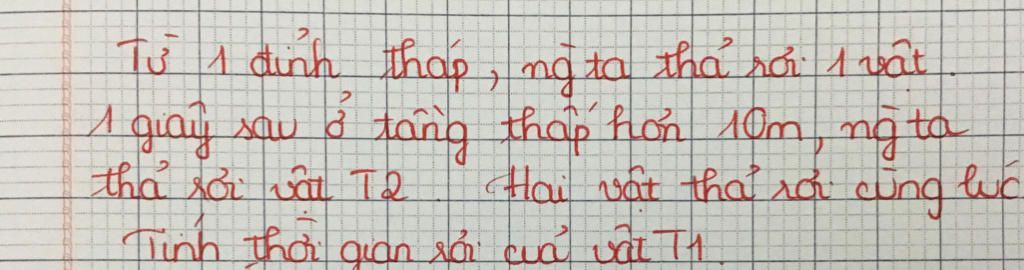 Từ 1 đỉnh tháp, ng ta thả rơi 1 vật.
1 giây sau ở tầng thấp hơn 10m, ng ta
thả rơi vật T2. Hai vật thả rơi cùng lúc
Tính thời gian rơi của vật T1.